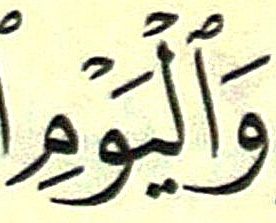 وَٱلْيَوْمِ ٱ